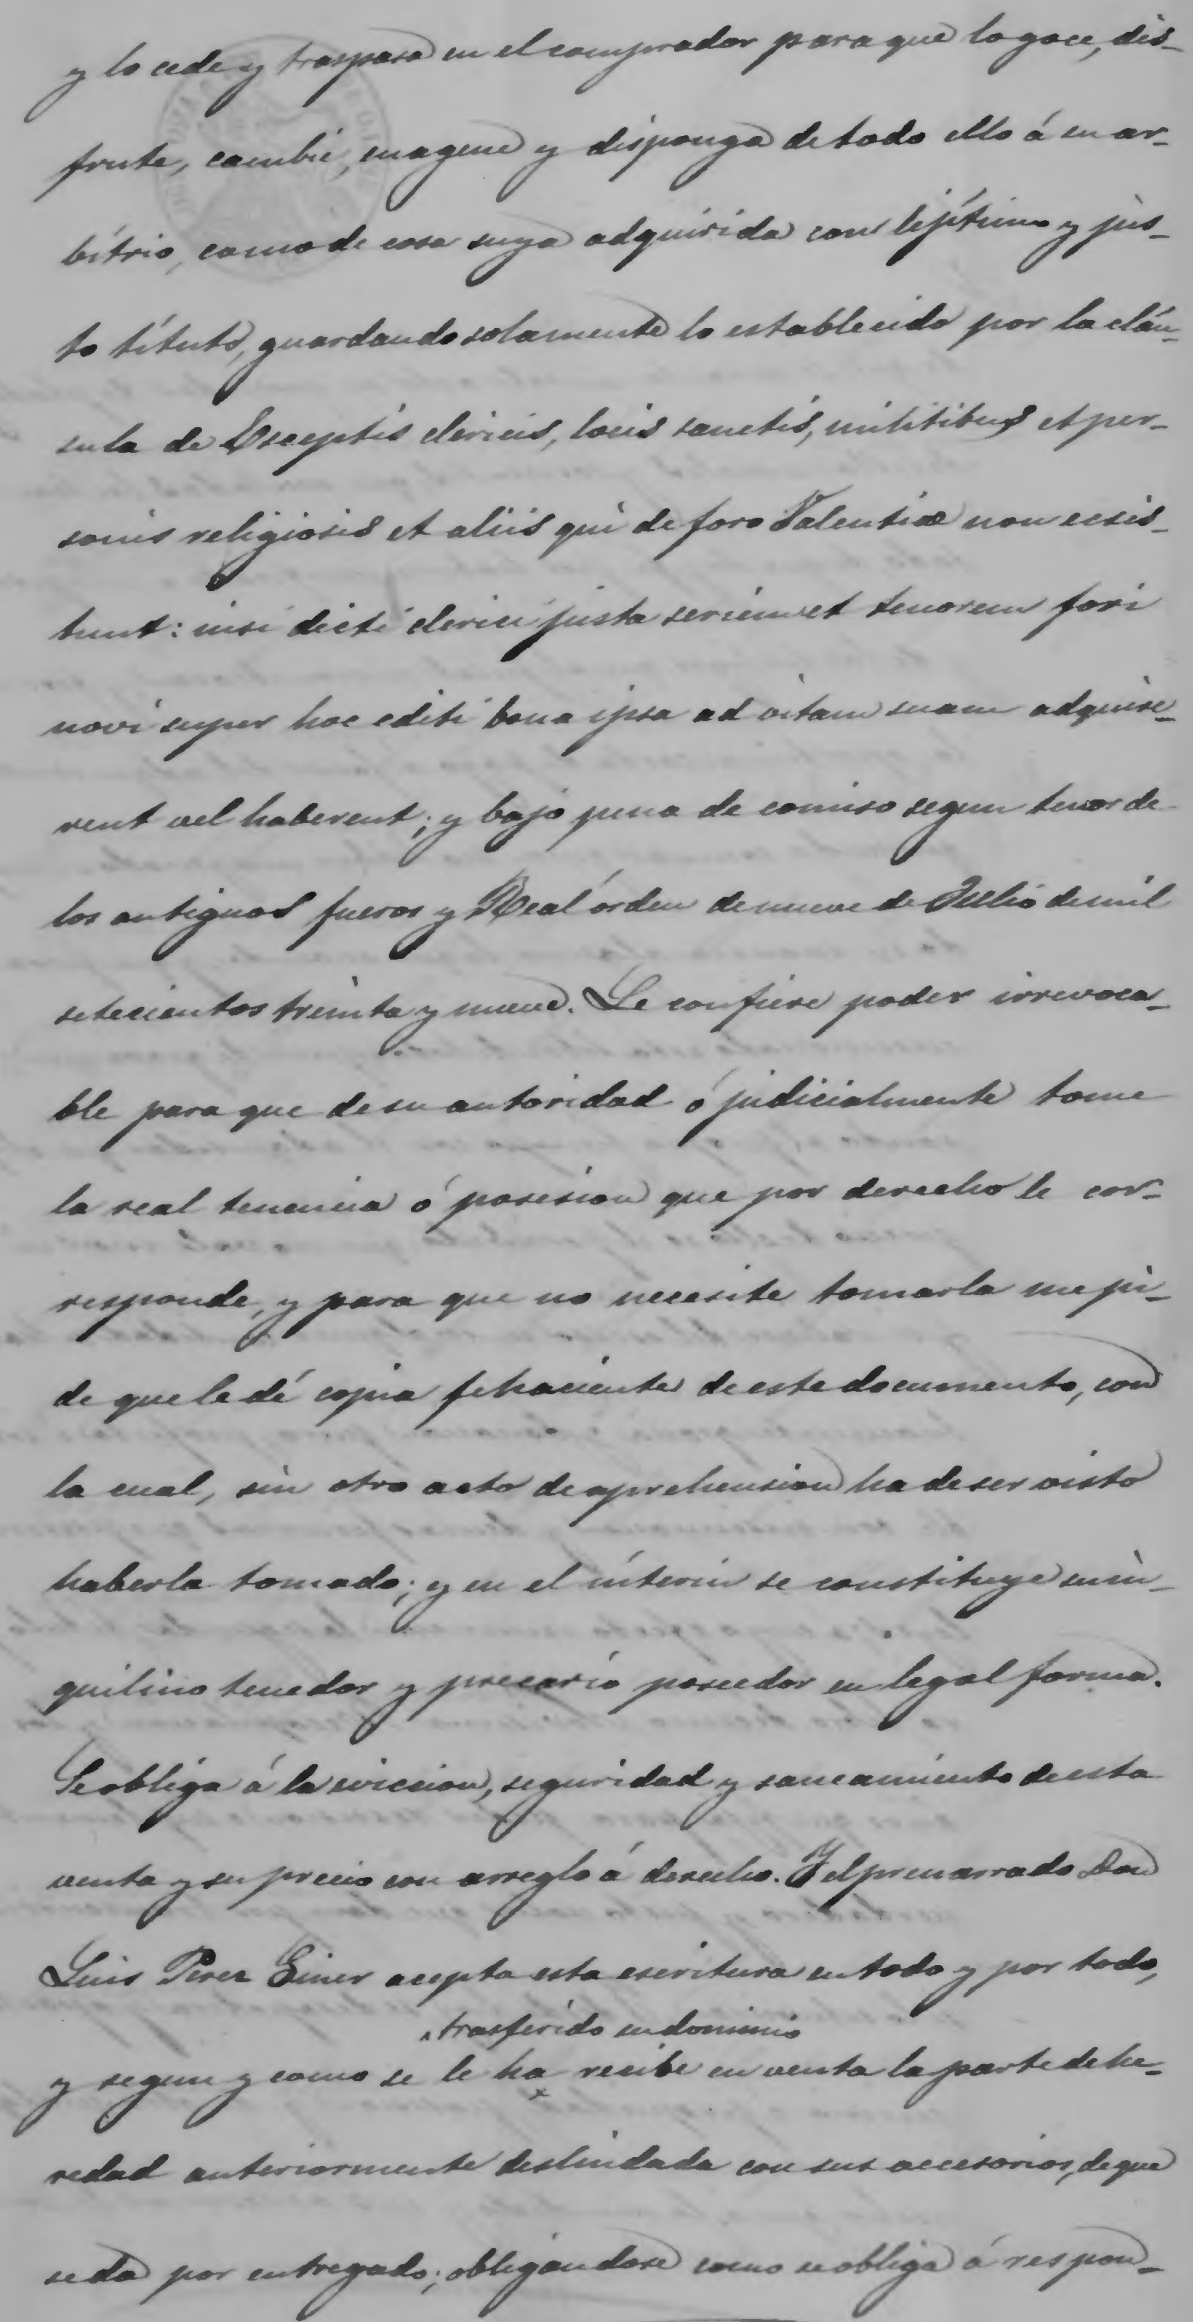 y lo cede y traspasa en el comprador para que lo goce, dis-
frute, cambie, enagene y disponga de todo ello á su ar-
bítrio, como de cosa suya adquirida con lejítimo y jus-
to título, guardando solamente lo establecido por la cláu-
sula de Esceptis clericis, locis sanctis, militibus et per-
sonis religiosis et aliis qui de foro Valentiæ non ecsis-
tunt: nisi dicti clerici justa seriem et tenorem fori
novi super hoc editi bona ipsa ad vitam suam adquire-
rent vel haberent; y bajo pena de comiso segun tenor de
los antiguos fueros y Real órden de nueve de Julio de mil
setecientos treinta y nueve. Le confiere poder irrevoca-
ble para que de su autoridad ó judicialmente tome
la real tenencia ó posesion que por derecho le cor-
responde, y para que no necesite tomarla me pi-
de que le dé copia fehaciente de este documento, con
la cual, sin otro acto de aprehension ha de ser visto
haberla tomado; y en el ínterin se constituye su in-
quilino tenedor y precario poseedor en legal forma.
Se obliga á la eviccion, seguridad y saneamiento de esta
venta y su precio con arreglo á derecho. Y el prenarrado Don
Luis Perez Giner acepta esta escritura en todo y por todo,
trasferido en dominio
y segun y como se le ha recibe en venta la parte de he-
redad anteriormente deslindada con sus accesorios, de que
se da por entregado; obligandose como se obliga á respon-